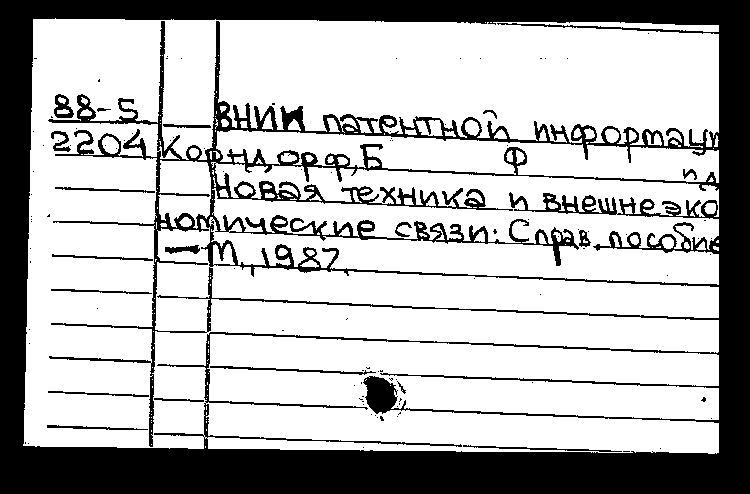 88-5 ВНИИ патентной информац
2204 Корндорф, Б Ф
и д
Новая техника и внешнеэко
номические связи: Справ. пособие
— М., 1987.